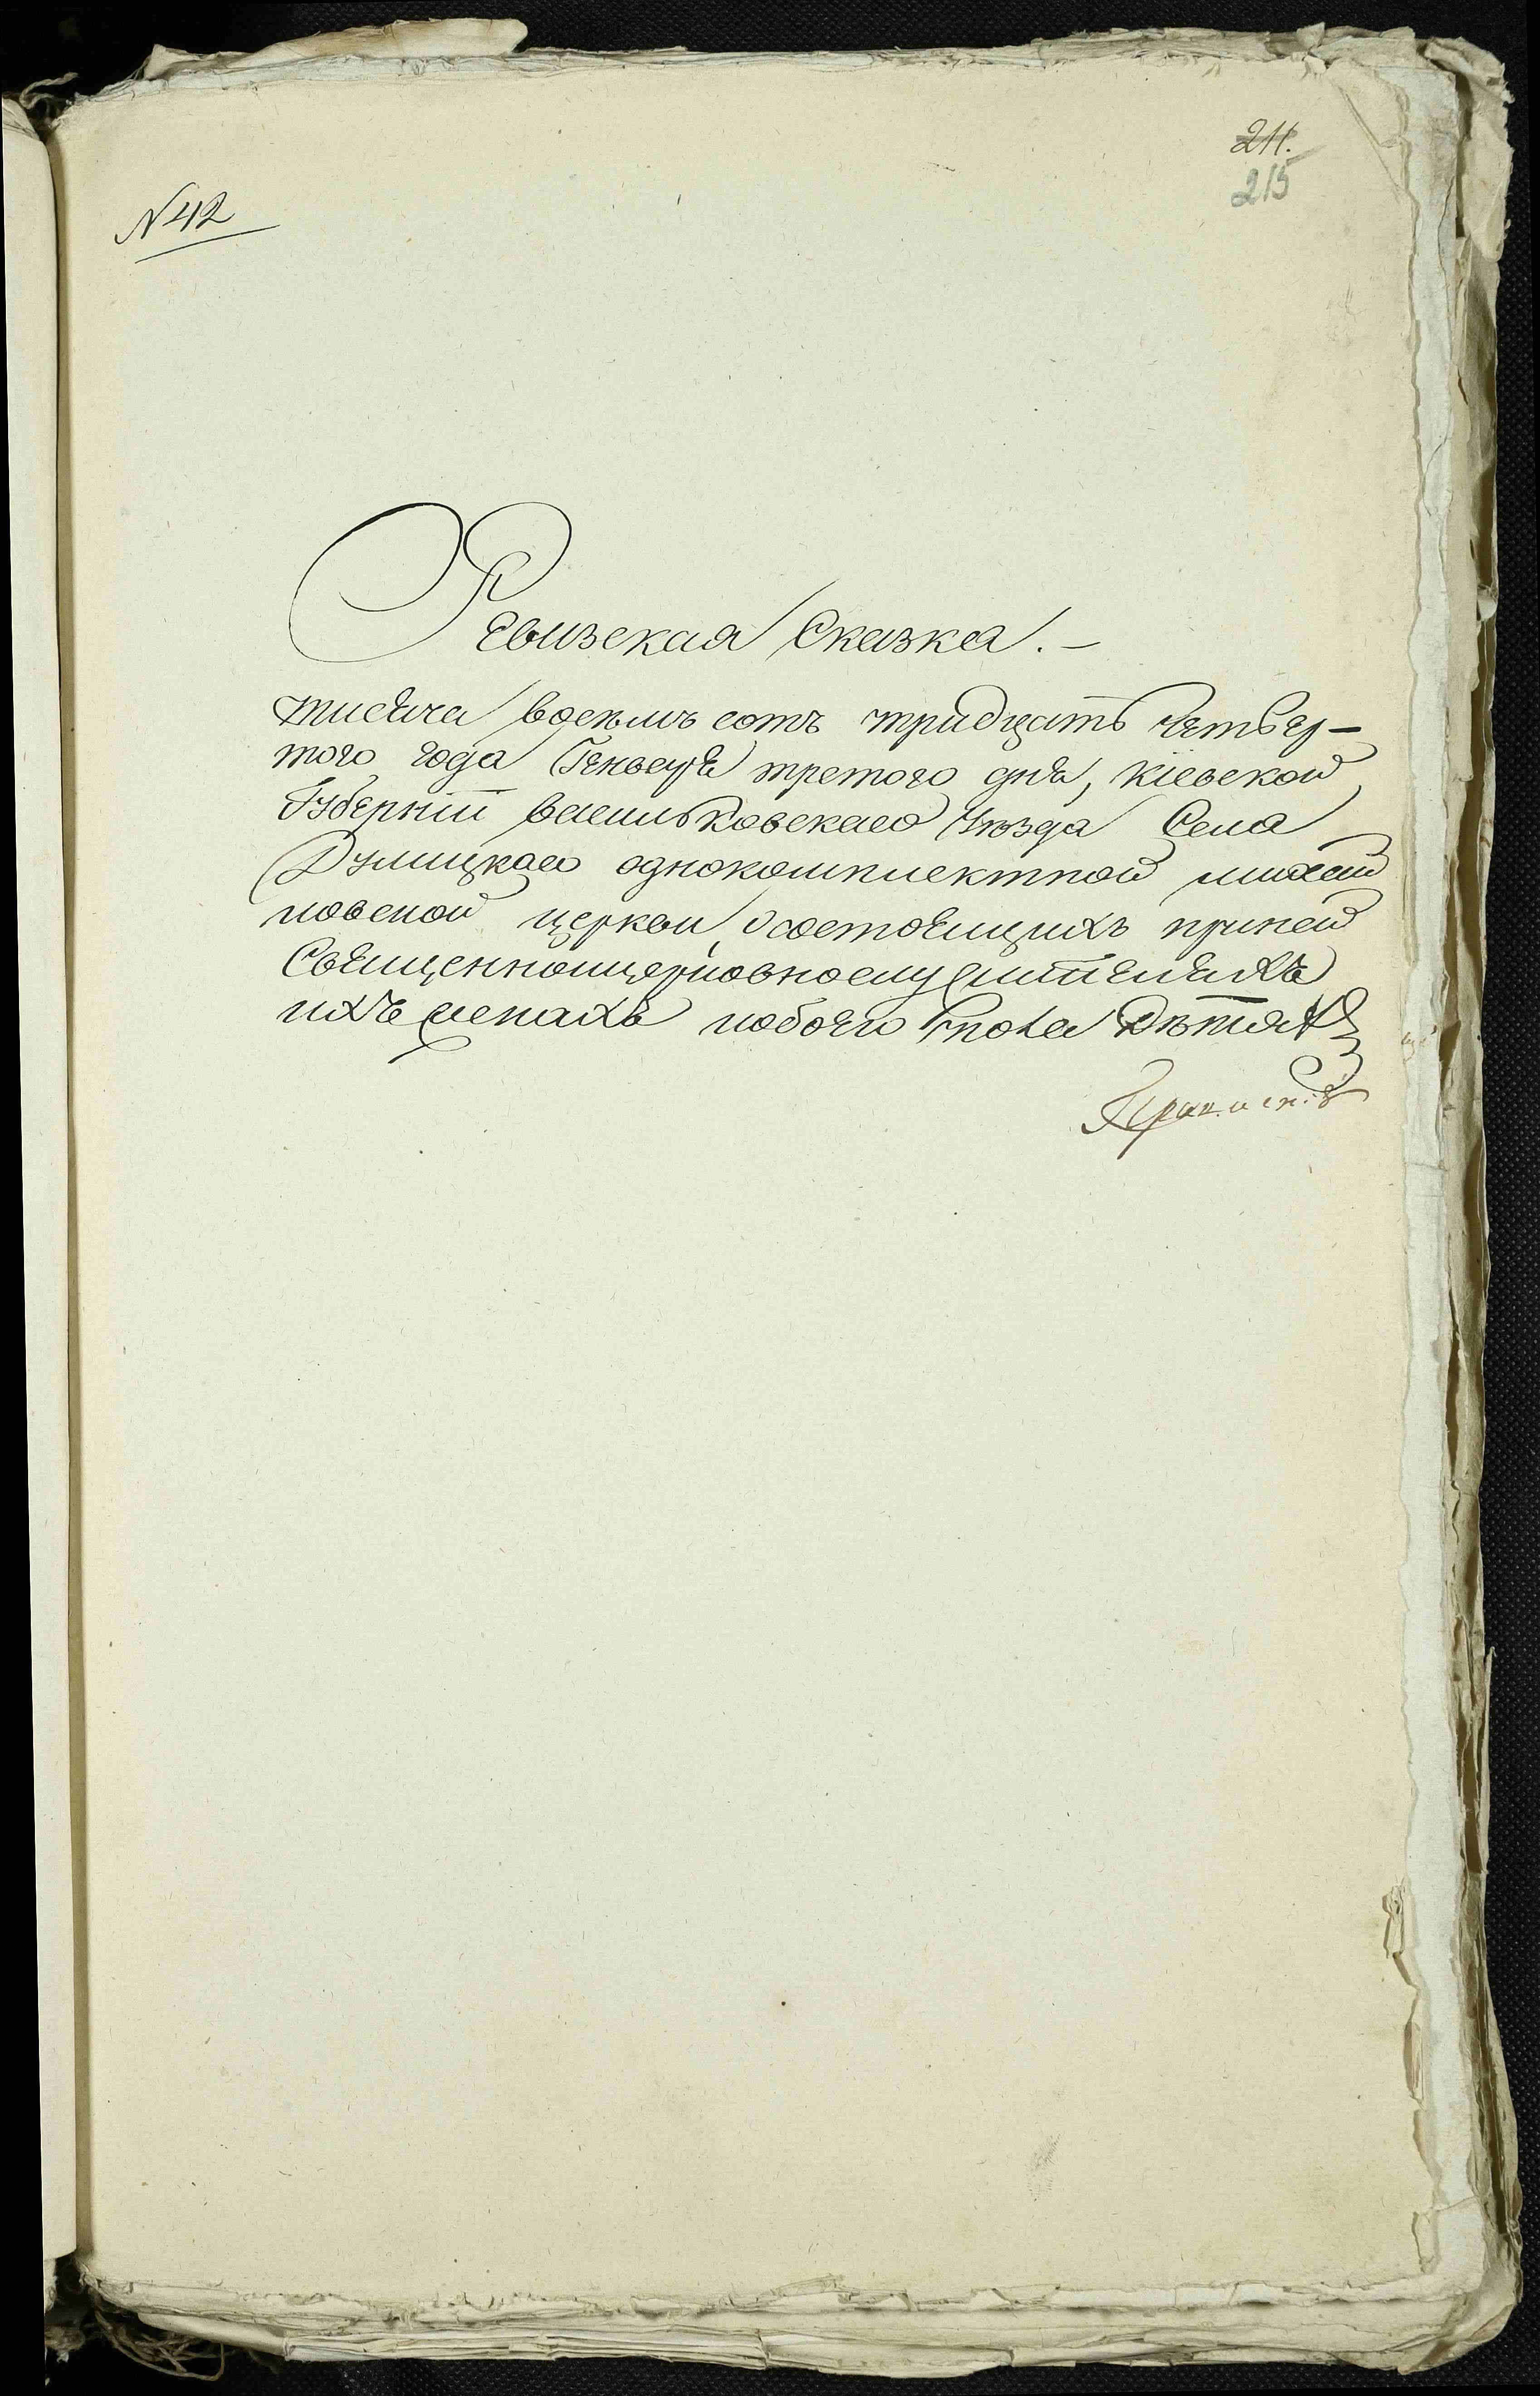 211.
215
N 42
Ревизская Сказка. –
тисяча восемъ сотъ тридцать четвер–
того года Генваря третого дня, Кіевской
Губерніи васильковскаго Уезда Села
Дулицкаго однокомплектной михай
ловской церкви, осостоящихъ приней
Священноицерковнослужителяхъ
ихъ женахъ иобоего пола Детяхъ